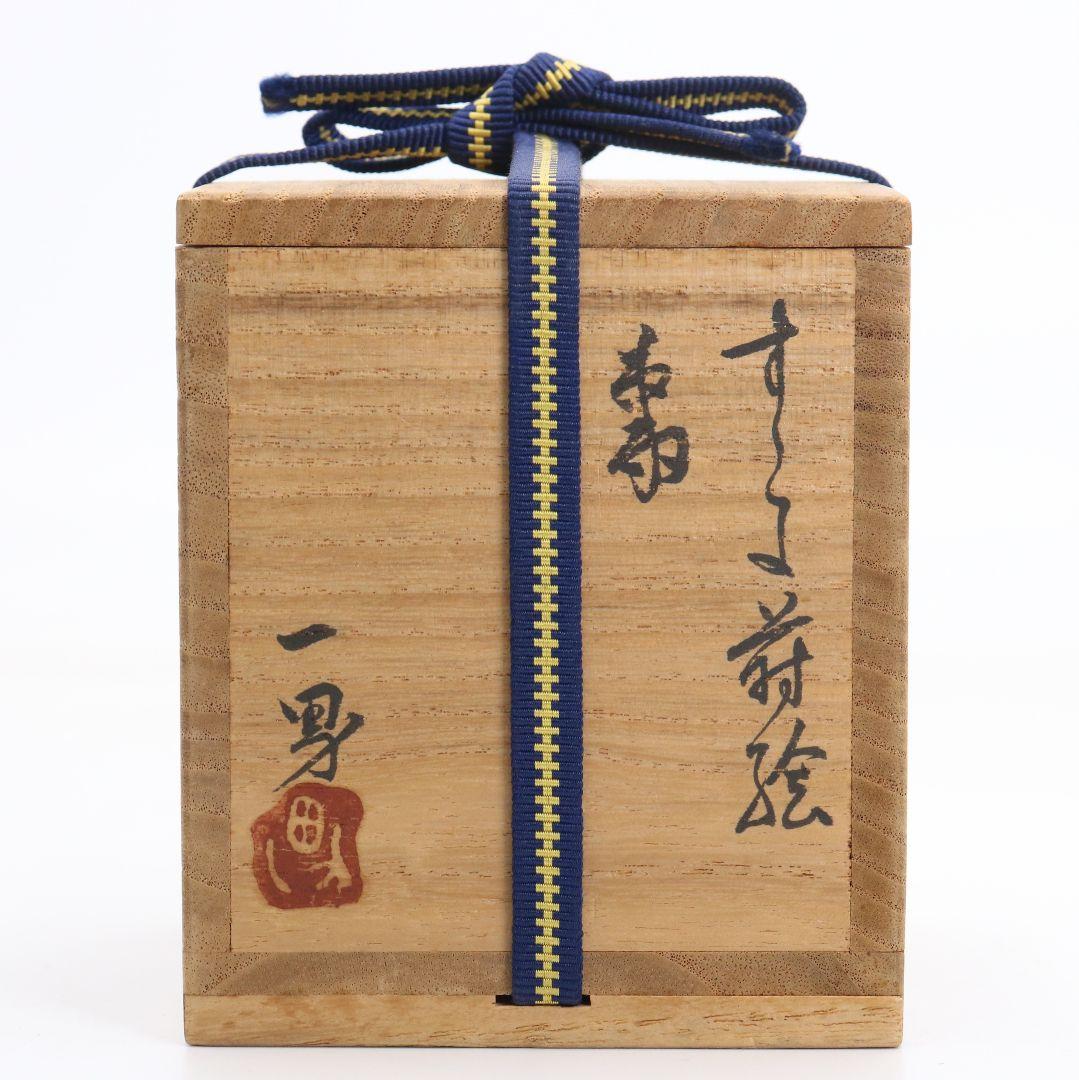 すゝき蒔絵
棗
一男